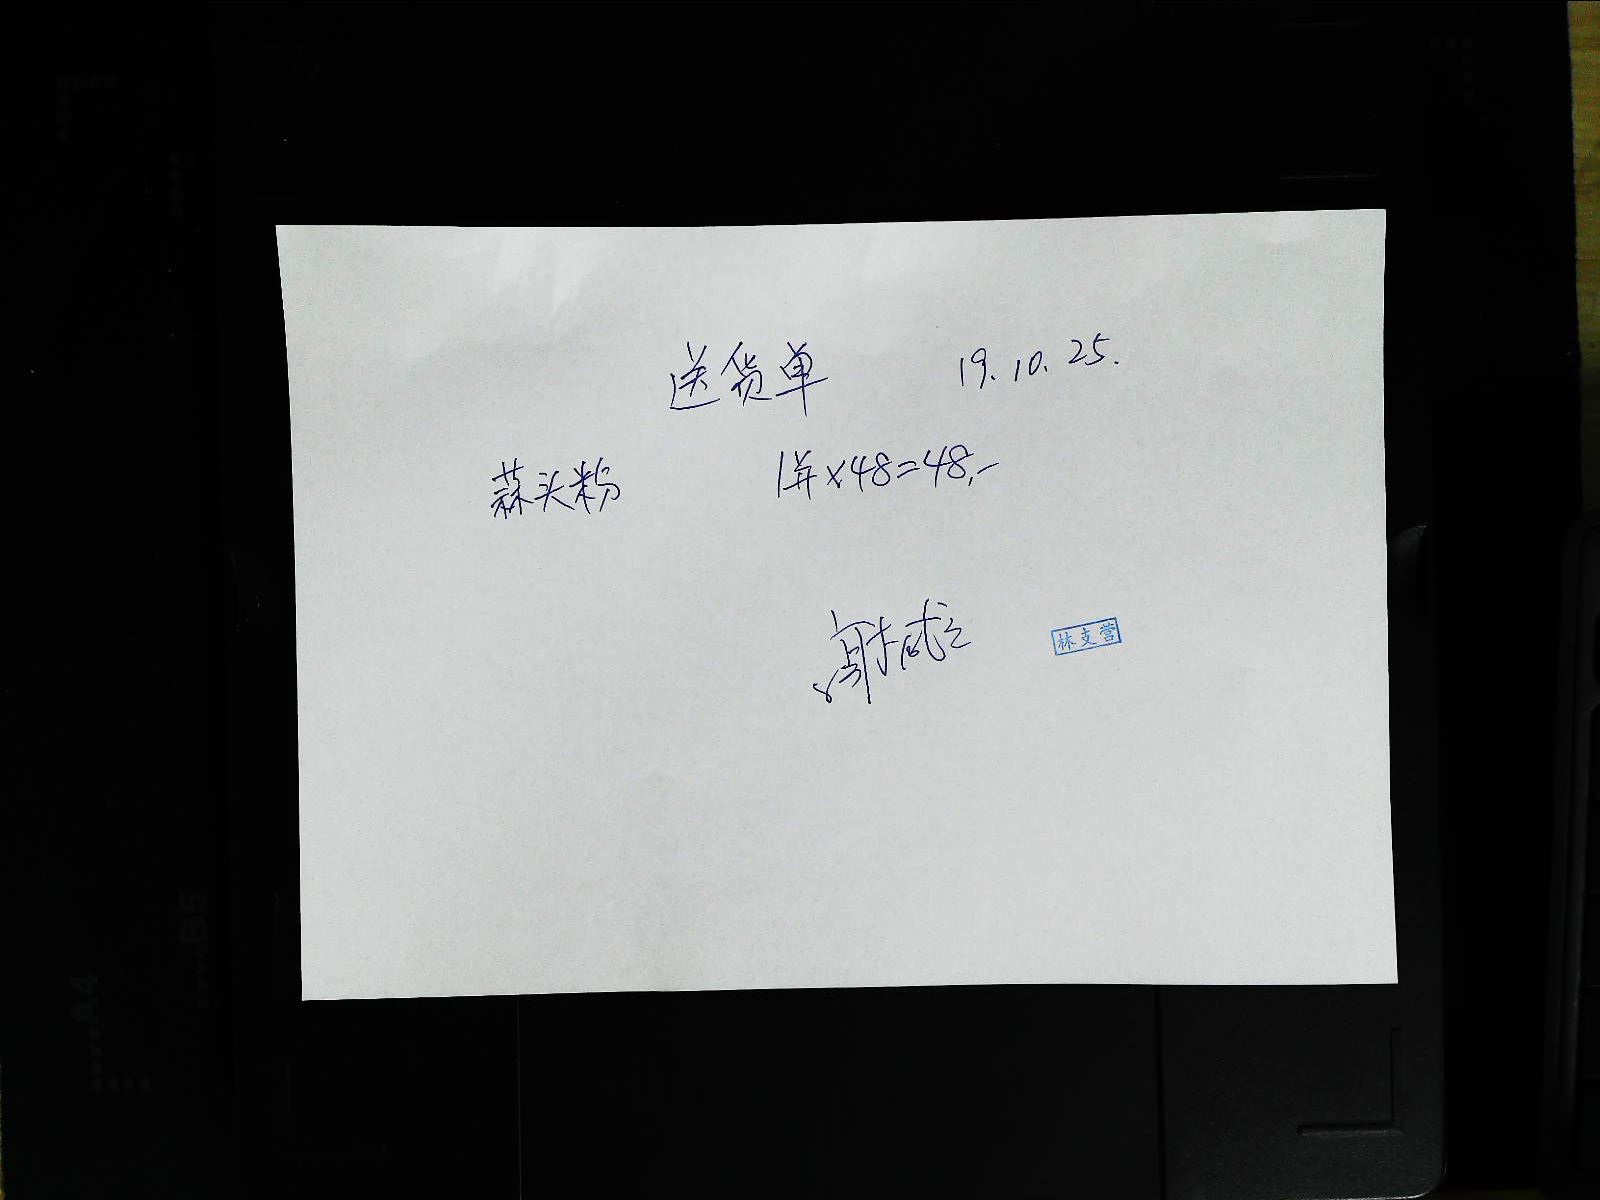 送货单 19.10.25.
蒜头粉 1并×48=48,-
林支营
A4
B5